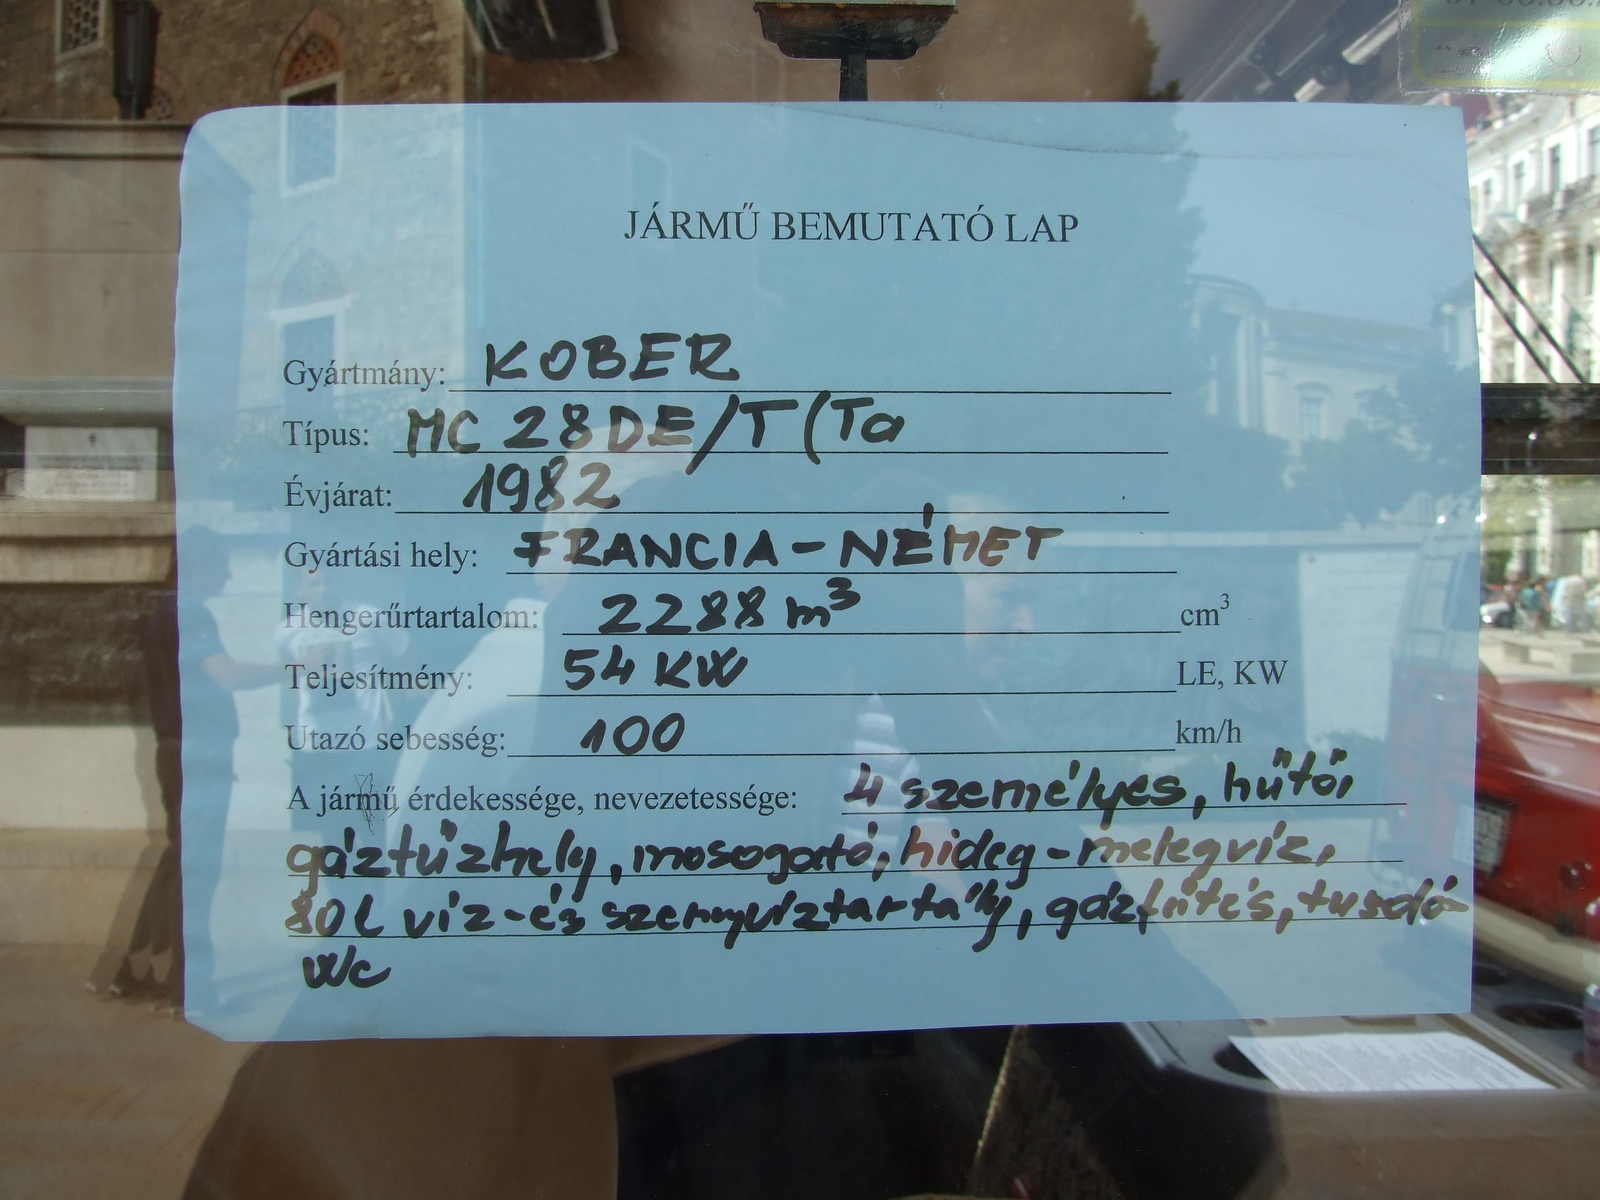 JÁRMŰ BEMUTATÓ LAP
Gyártmány: KOBER
Típus: MC 28DE/T (Ta
Évjárat: 1982
Gyártási hely: FRANCIA-NÉMET
Hengerűrtartalom: 2288 m³ cm³
Teljesítmény: 54 KW LE, KW
Utazó sebesség: 100 km/h
A jármű érdekessége, nevezetessége: 4 személyes, hűtő,
gáztűzhely, mosogató, hideg-melegvíz,
80l víz-és szennyvíztartály, gázfűtés, tusoló
Wc